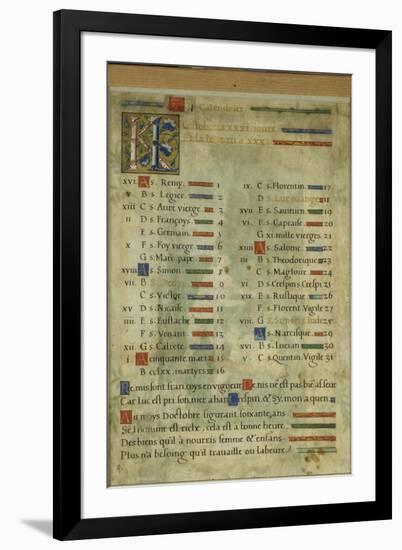 Calendrier
KL
xvi A s. Remy. 1
v B s. Legier. 2
xiii C s. Aure vierge. 3
ii D s. Françoys. 4
E s. Germain. 5
x F s. Foy vierge 6
G s. Marc pape. 7
xviii A s. Simon. 8
vii. B
C s. Victor. 10
xv D s. Nicaise. 11
iiii E s. Eustache 12
F s. Venant 13
xii G s. Calixte 14
i A Cinquante mart. 15
B ccLxx. martyrs 16
ix C s. Florentin. 17
D s. Luc euange. 18
xvii E s. Saurinin. 19
vi F s. Capraise. 20
G xi. mille vierges. 21
xiiii A s. Salome. 22
iii B s. Theodorique. 23
C s. Magloire 24
xi D s. Crespin s. Crespi. 25
E s. Rustique 26
F s. Florent. Vigile 27
G s. Simon s. Iude 28
A s. Narcisque. 29
xvi B s. Lucian 30
v C s. Quentin. Vigile 31
Remis sont francoys en vigoeur Denis ne est pas
Car luc est prisonnier Crespin &
Au moys Doctobre figurant soixante ans
Se l'homme est riche, cela est à bonne heure,
Des biens qu'il à nourris femme & enfans
Plus n'a besoing qu'il trauaille ou labeure